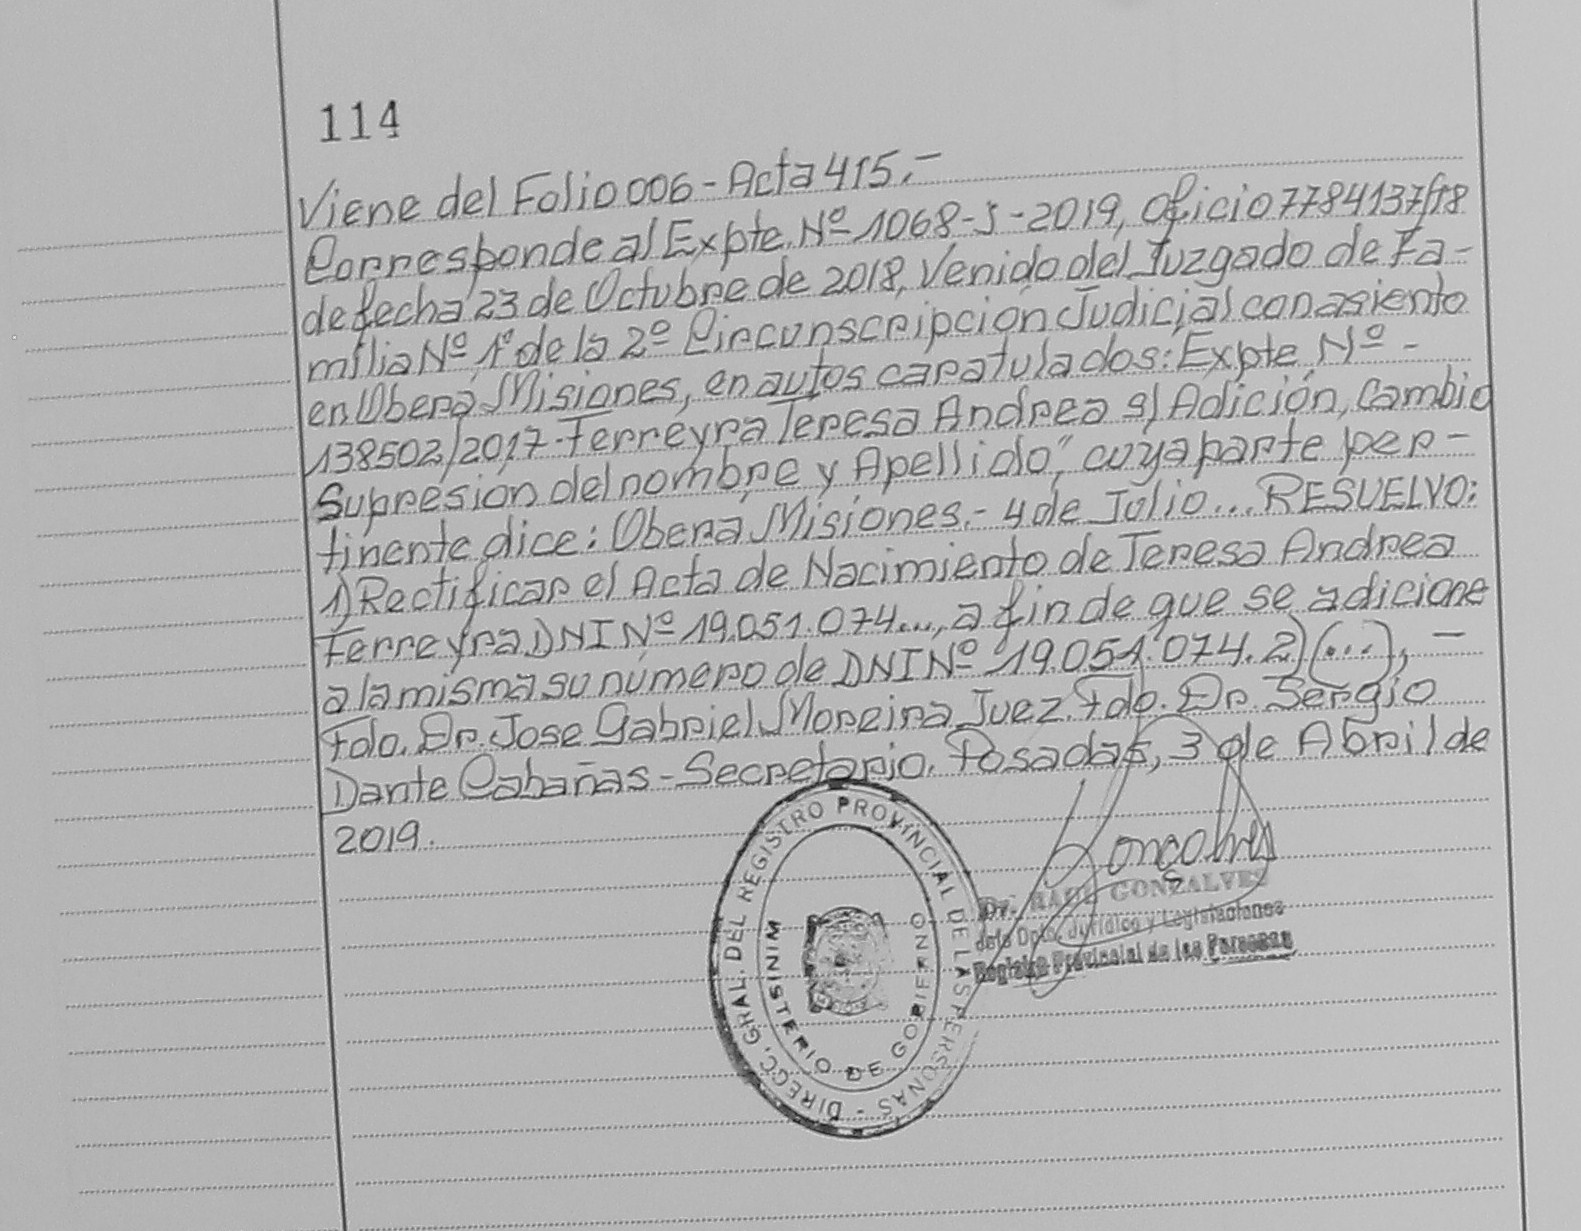 114
Viene del Folio 006 - Acta 415.-
Corresponde al Expte. Nº 1068-J-2019, Oficio 7784137/18
de fecha 23 de Octubre de 2018, Venido del Juzgado de Fa-
milia Nº 1º de la 2º Circunscripción Judicial con asiento
en Oberá Misiones, en autos caratulados: Expte Nº -
138502/2017- Ferreyra Teresa Andrea s/ Adición, Cambio
Supresión del nombre y Apellido", cuya parte per-
tinente dice: Oberá Misiones.- 4 de Julio... RESUELVO:
1) Rectificar el Acta de Nacimiento de Teresa Andrea
Ferreyra DNI Nº 19.051.074..., a fin de que se adicione
a la misma su número de DNI Nº 19.051.074. 2) (...), -
Fdo. Dr. Jose Gabriel Moreira Juez. Fdo. Dr. Sergio
Dante Cabañas - Secretario. Posadas, 3 de Abril de
2019.
DIRECC. GRAL. DEL REGISTRO PROVINCIAL DE LAS PERSONAS -
MINISTERIO DE GOBIERNO
Gonçalves
Dr. RAUL GONZALVES
Jefe Dpto. Jurídico y Legislaciones
Registro Provincial de las Personas